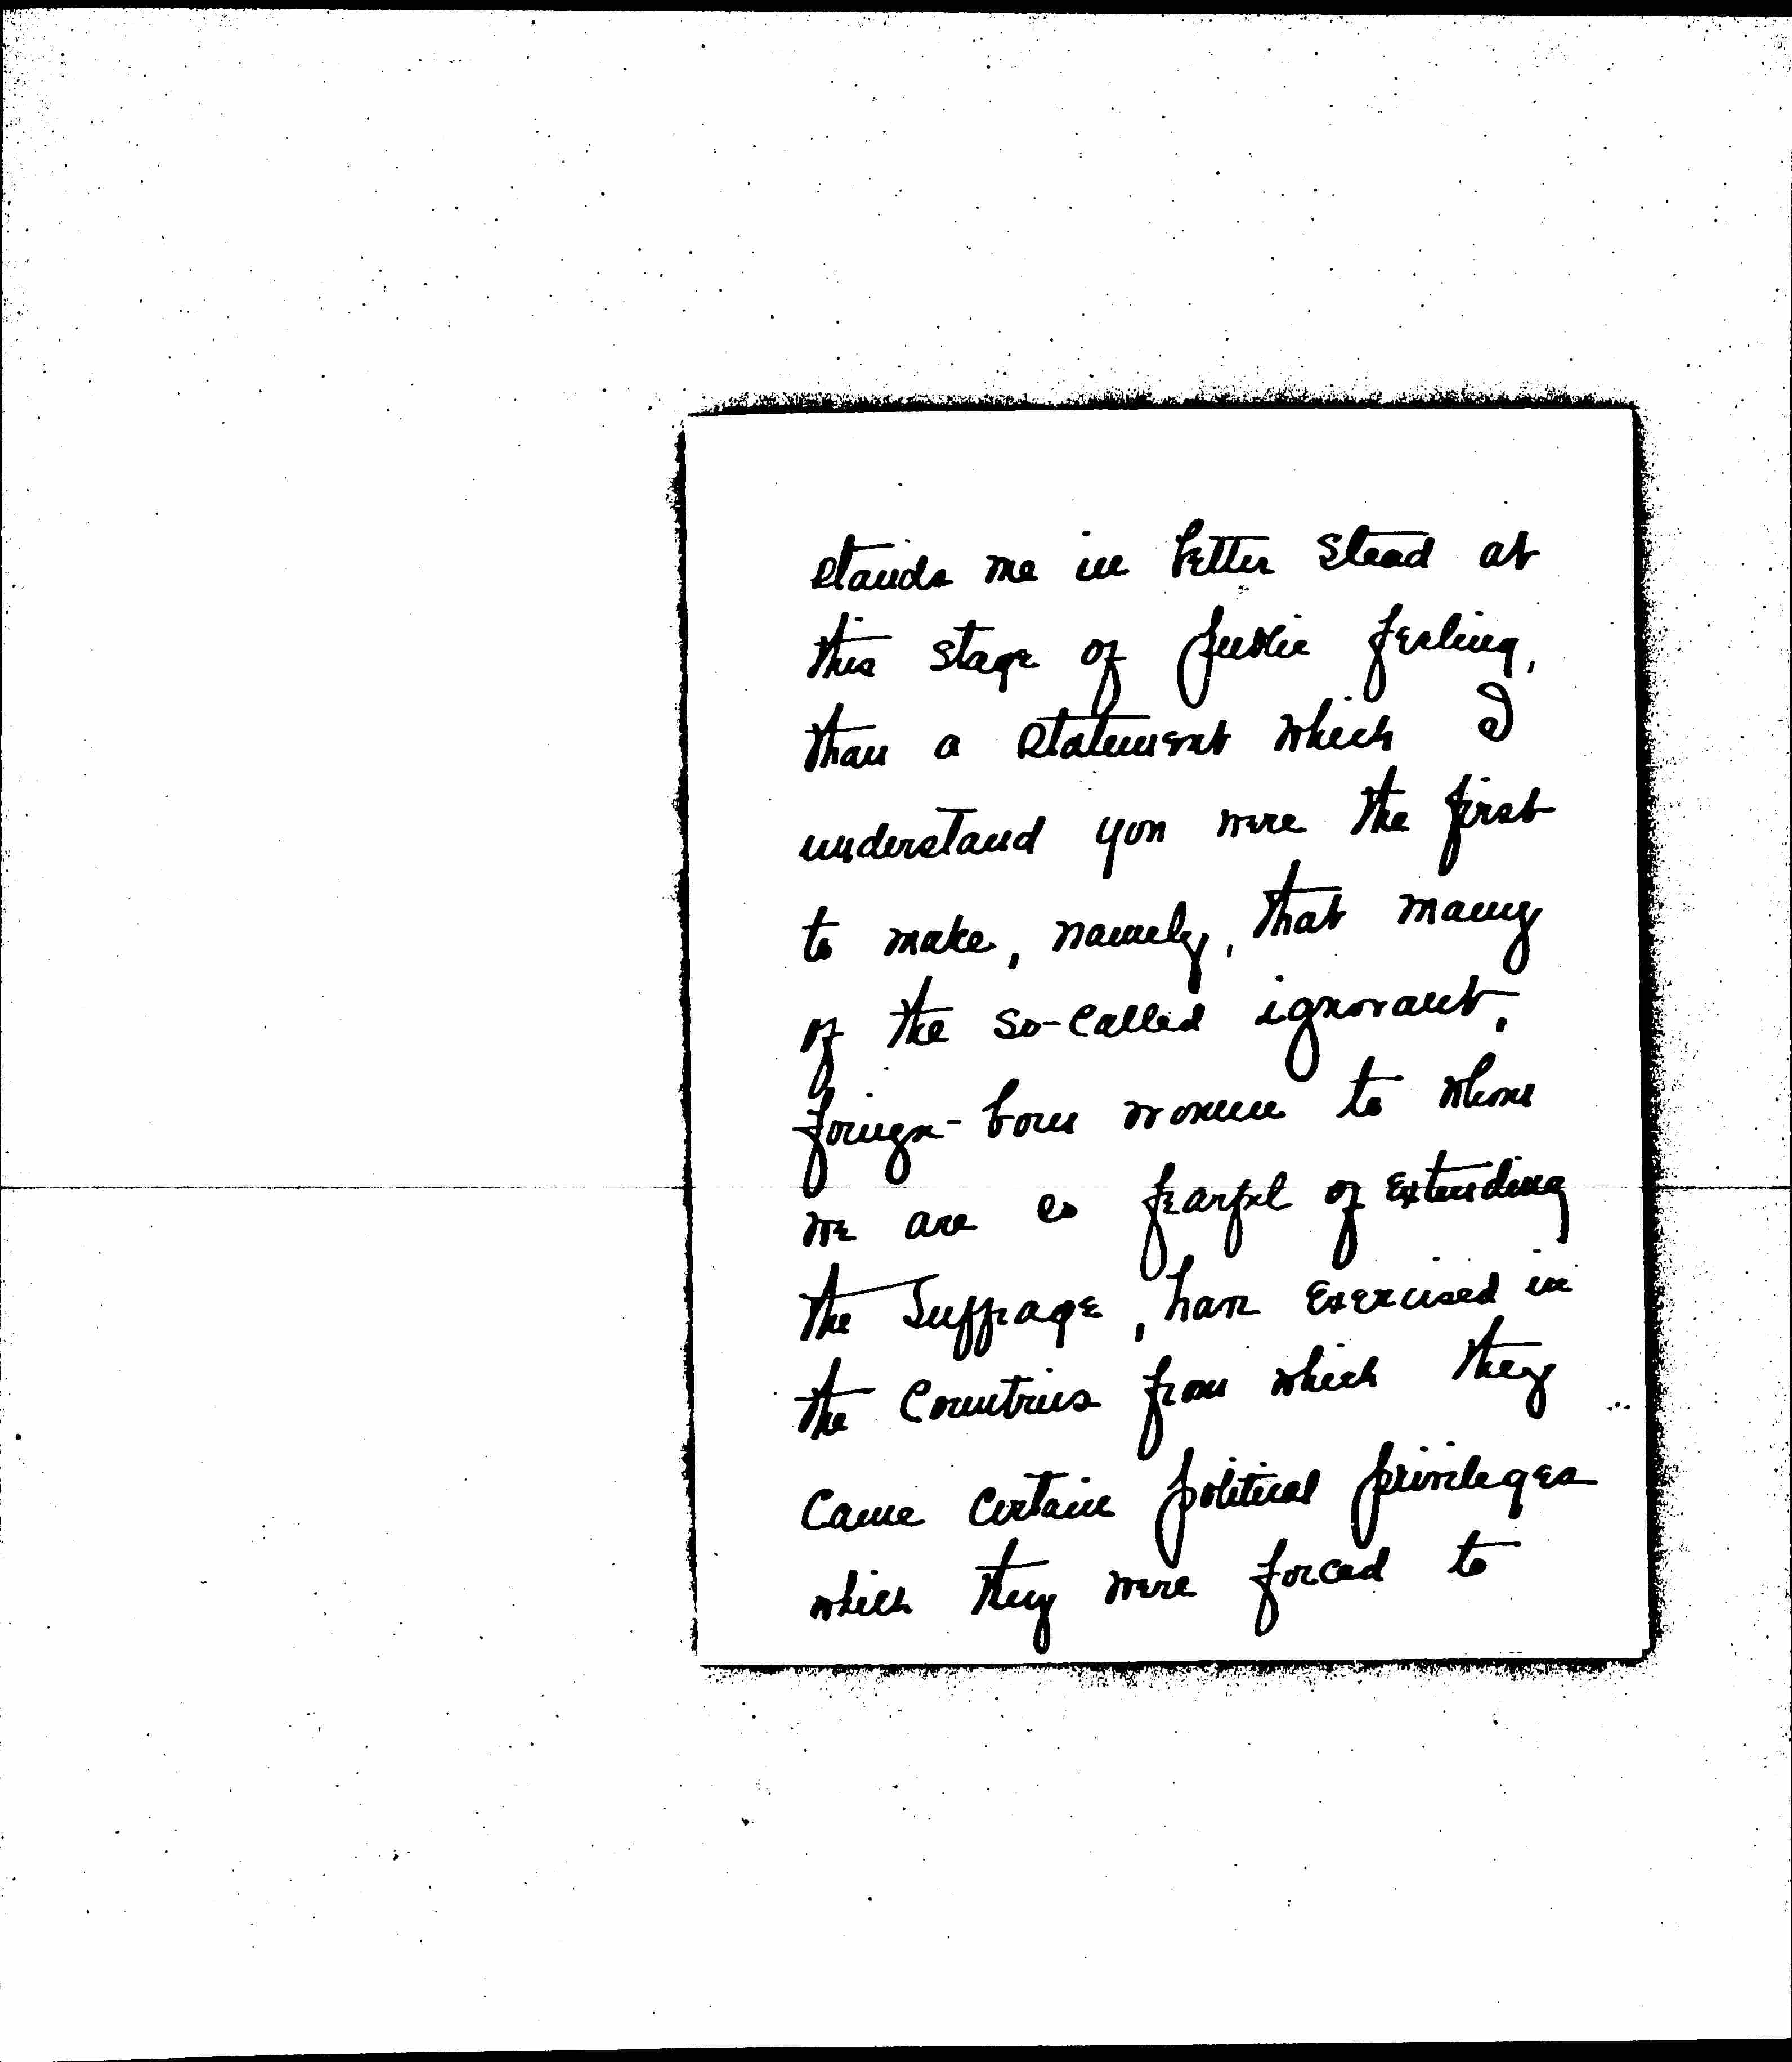 stands me in better stead at
this stage of public feeling,
than a statement which I
understand you were the first
to make, namely, that many
of the so-called ignorant,
foreign-born women to whom
we are so fearful of extending
the Suffrage, have exercised in
the Countries from which they
came certain political privileges
which they were forced to